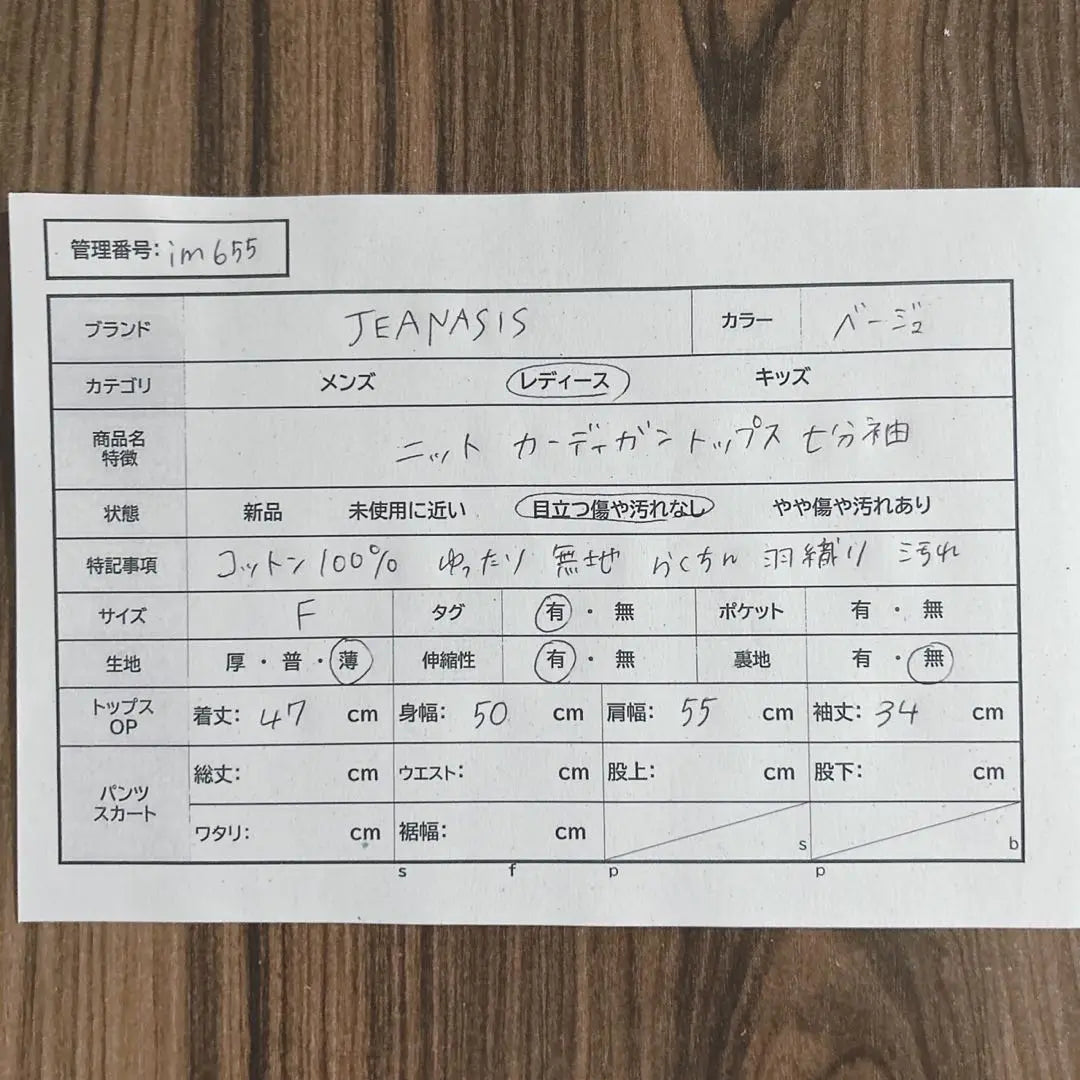 管理番号: im655
ブランド JEANASIS カラー ベージュ
カテゴリ メンズ レディース キッズ
商品名 特徴 ニット カーディガン トップス 七分袖
状態 新品 未使用に近い 目立つ傷や汚れなし やや傷や汚れあり
特記事項 コットン100% ゆったり 無地 らくちん 羽織り 汚れ
サイズ F タグ 有・無 ポケット 有・無
生地 厚・普・薄 伸縮性 有・無 裏地 有・無
トップス OP 着丈: 47 cm 身幅: 50 cm 肩幅: 55 cm 袖丈: 34 cm
パンツ スカート 総丈: cm ウエスト: cm 股上: cm 股下: cm
ワタリ: cm 裾幅: cm s b
s f p p